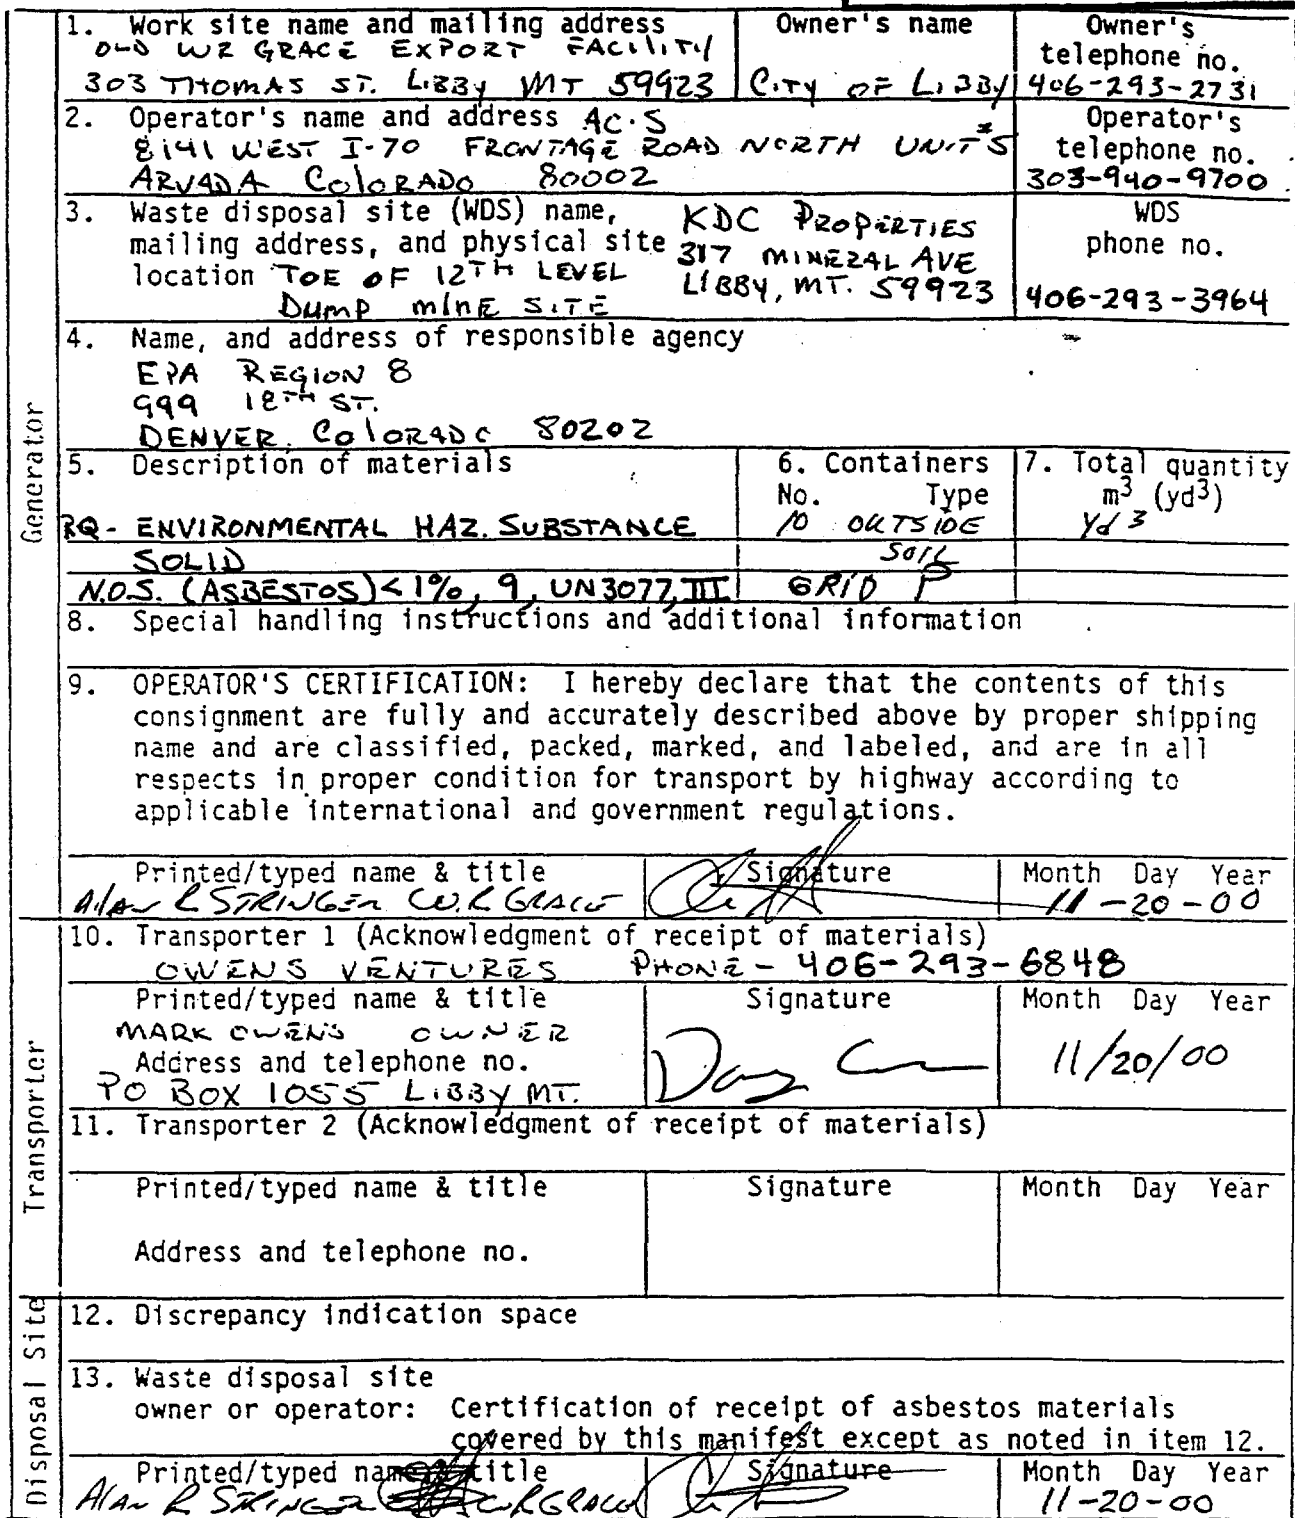 1. Work site name and mailing address
OLD WR GRACE EXPORT FACILITY
303 THOMAS ST. LIBBY MT 59923
Owner's name
CITY OF LIBBY
Owner's
telephone no.
406-293-2731
2. Operator's name and address AC·S
8141 WEST I-70 FRONTAGE ROAD NORTH UNIT #5
ARVADA COLORADO 80002
Operator's
telephone no.
303-940-9700
3. Waste disposal site (WDS) name,
mailing address, and physical site
location TOE OF 12TH LEVEL
DUMP MINE SITE
KDC PROPERTIES
317 MINERAL AVE
LIBBY, MT. 59923
WDS
phone no.
406-293-3964
4. Name, and address of responsible agency
EPA REGION 8
999 18TH ST.
DENVER, COLORADO 80202
5. Description of materials
RQ - ENVIRONMENTAL HAZ. SUBSTANCE
SOLID
N.O.S. (ASBESTOS) < 1%, 9, UN3077, III
6. Containers
No. Type
10 OUTSIDE
SOIL
GRID P
7. Total quantity
m3 (yd3)
Yd3
8. Special handling instructions and additional information
9. OPERATOR'S CERTIFICATION: I hereby declare that the contents of this
consignment are fully and accurately described above by proper shipping
name and are classified, packed, marked, and labeled, and are in all
respects in proper condition for transport by highway according to
applicable international and government regulations.
Printed/typed name & title
Alan R STRINGER W.R GRACE
Signature
Month Day Year
11-20-00
10. Transporter 1 (Acknowledgment of receipt of materials)
OWENS VENTURES PHONE - 406-293-6848
Printed/typed name & title
MARK OWENS OWNER
Address and telephone no.
PO BOX 1055 LIBBY MT.
Signature
Month Day Year
11/20/00
11. Transporter 2 (Acknowledgment of receipt of materials)
Printed/typed name & title
Signature
Month Day Year
Address and telephone no.
12. Discrepancy indication space
13. Waste disposal site
owner or operator: Certification of receipt of asbestos materials
covered by this manifest except as noted in item 12.
Printed/typed name & title
Alan R STRINGER W.R GRACE
Signature
Month Day Year
11-20-00
Generator
Transporter
Disposal Site